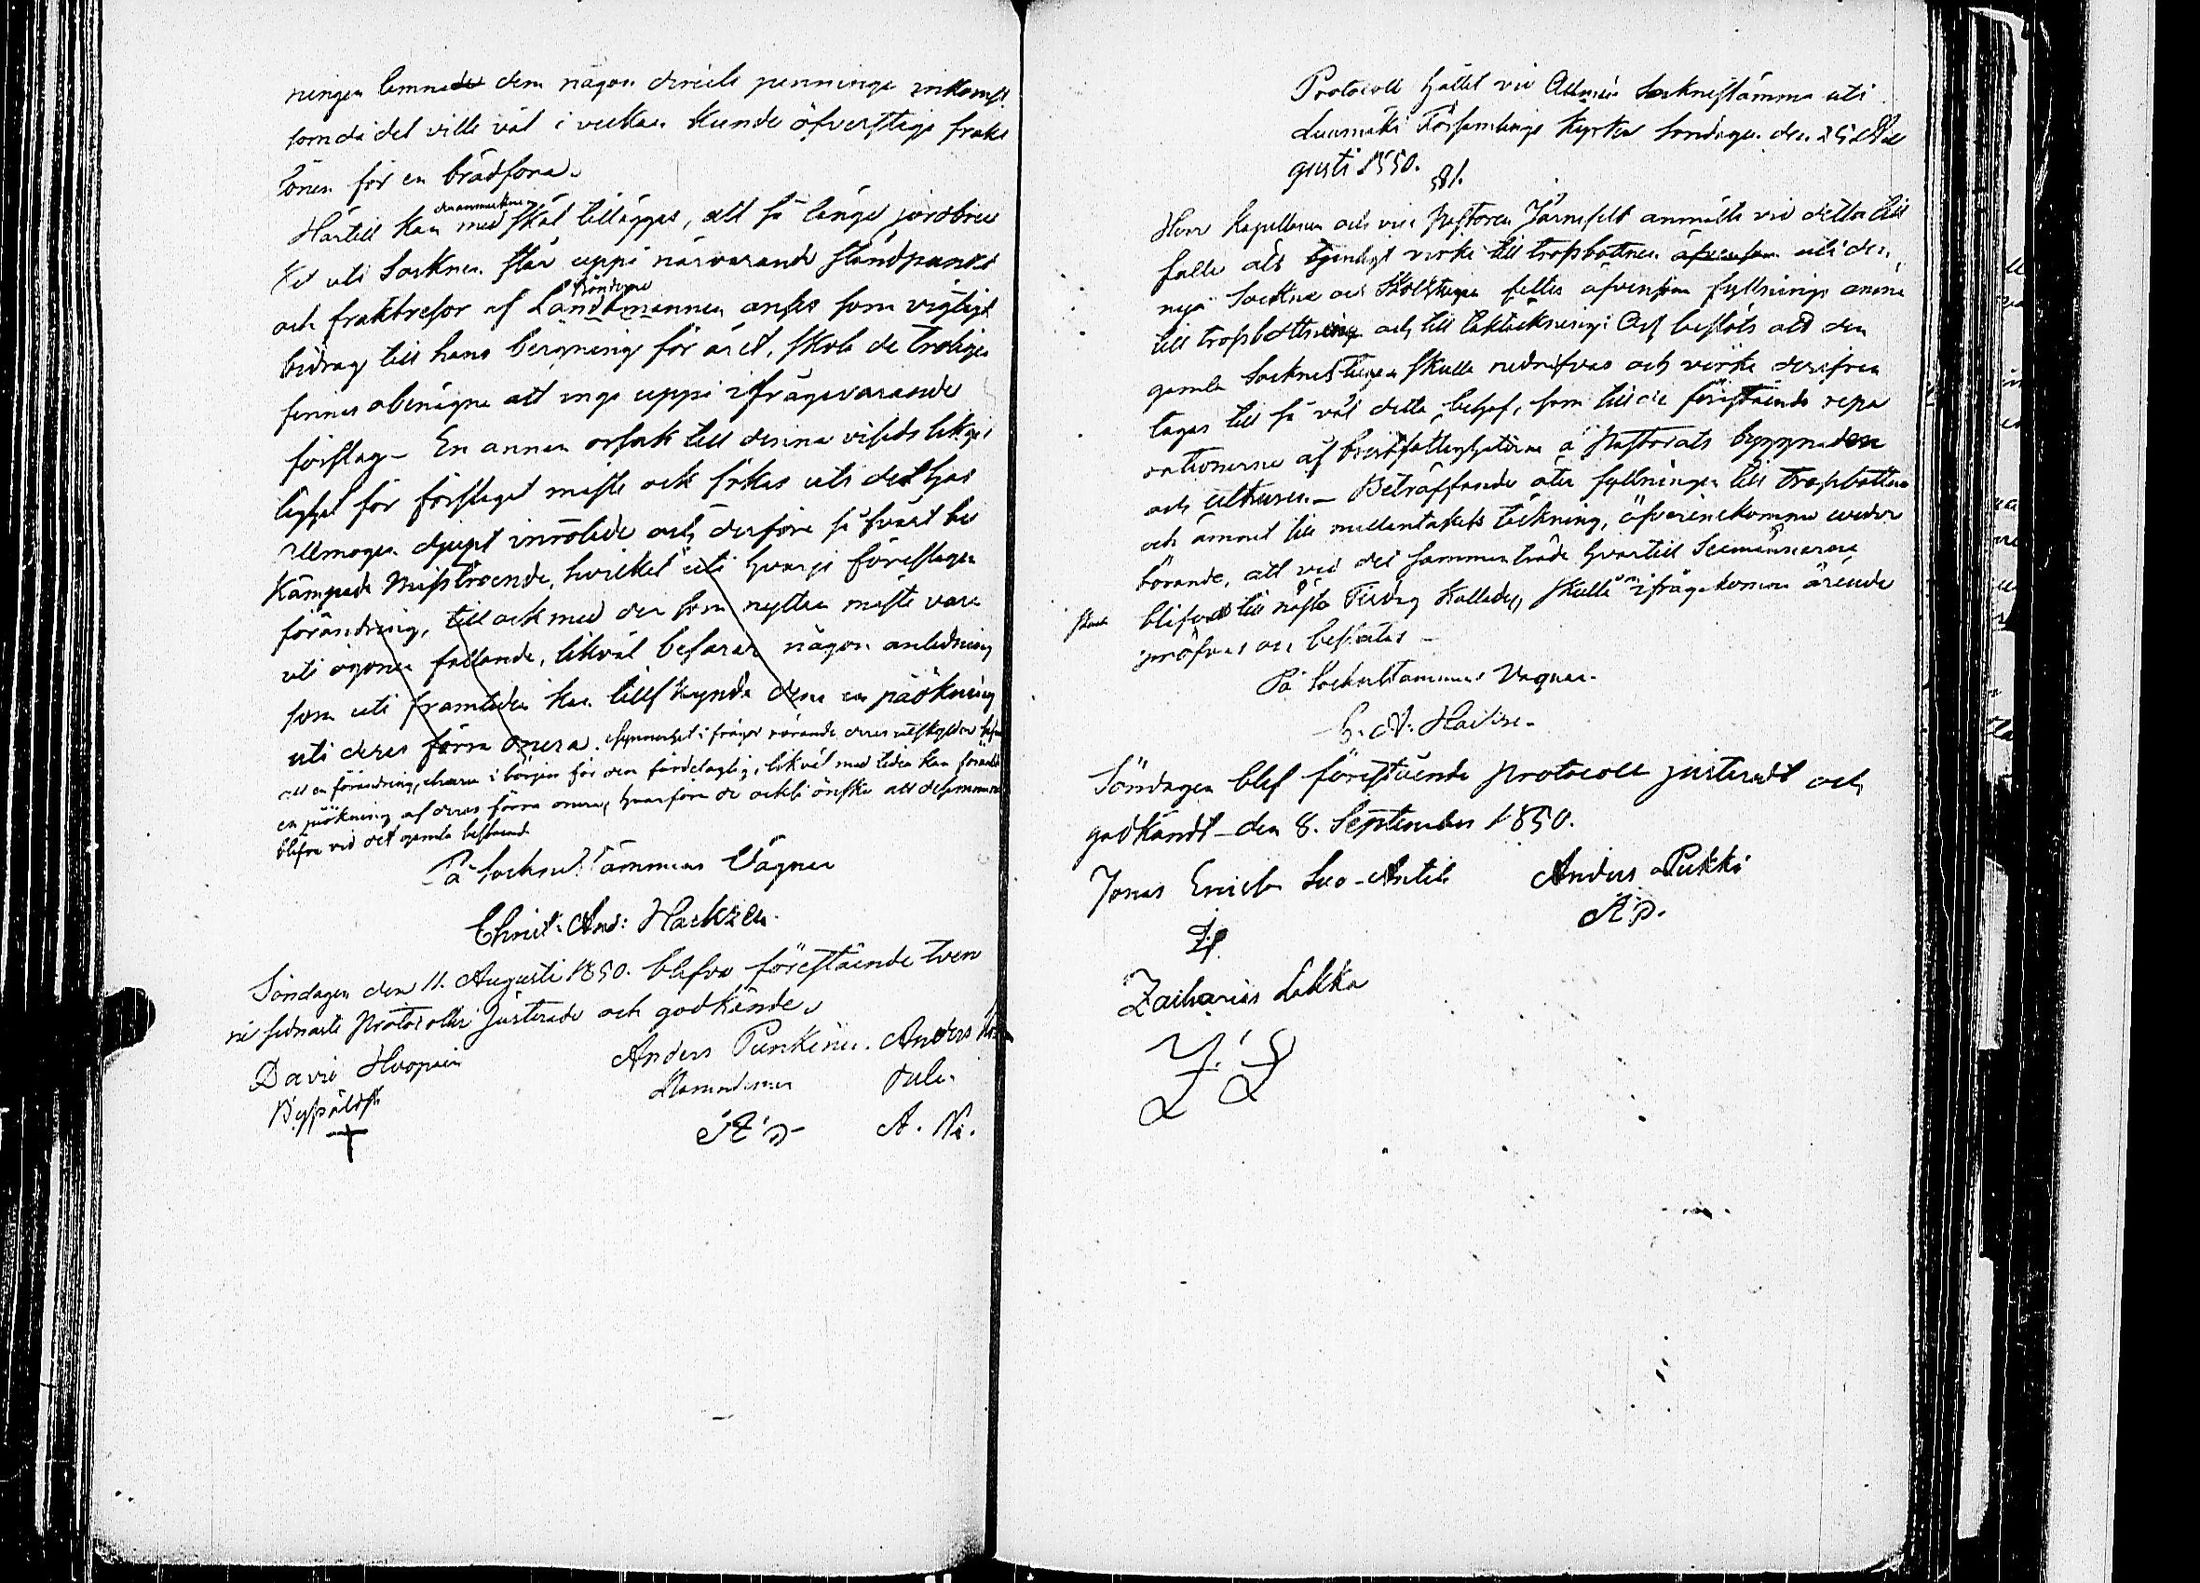 ningen lemnade dem någon direkte penninge inkomst
som då det ville väl i veckan kunde öfverstiga frakt
lönen för en brädfora.
Härtill kan med skäl tilläggas, att så länge jordbru
ket uti Socknen står uppå närvarande ståndpunkt
Bönderne
och fraktresor af Landtmannen anses som vigtigt
bidrag till hans bergning för året, skola de troligen
finnas obenägna att ingå uppå ifrågavarande
förslag – En annan orsak till denna visade likgil
tighet för förslaget måste ock sökas uti det hos
Allmogen djupt inrotade och derföre så svårt be
kämpade misstroende, hvilket uti hvarje föreslagen
förändring, till och med den som nyttan måste vara
uti ögonen fallande, likväl befarar någon anledning
som uti framtiden kan tillskynda dem en påökning
uti deras förra onera. i frågor rörande deras utskylder
att en förändring, ehuru i början för dem fördelaglig, likväl med tiden kan
en påökning af deras förra onera, hvarföre de ock önska att
blifva vid det gamla bestående
På Sockne Stämmans Vägnar
Christ: And: Hackzell.
Söndagen den 11. Augusti 1850. blefvo förestående tven
ne sednaste Protocoller justerade och godkände.
David Huopain Anders Punkinen. Anders
A. P. A. Ni.
Protocoll hållet vid Allmän Sockne stämma uti
Luumäki Församlings Kyrka Söndagen den 25 Au
gusti 1850.
§1.
Herr Kapellanen och vice Pastoren Järnefelt anmälte vid detta till
fälle att tjenligt virke till trossbottnen äfvensom uti den
nya Sockne och Skolstugan felles äfvensom fyllnings ämne
till trossbottnen och till taktäckning: Och beslöts att den
gamla Socknestugan skulle nedrifvas och virke derifrån
tagas till så väl detta behof, som till de förestående repa
rationerne af bristfälligheterna å Pastorats byggnaden
och uthusen. – Beträffande åter fyllningen till trossbotten
och ämnet till mellantakets täckning, öfverenskommo veder
börande, att vid det sammanträde hvartill Sexmännerne
blifvit till nästa Tisdag kallade, skulle ifrågakomne ärende
pröfvas och beslutas –
På Sockne Stämmans Vägnar.
C. A. Hackzell.
Söndagen blef förestående Protocoll justeradt och
godkändt – den 8. September 1850.
Jonas Ericks. Suo-Antila Anders Pukki
A. P.
Zacharias Lakka
Z. L.